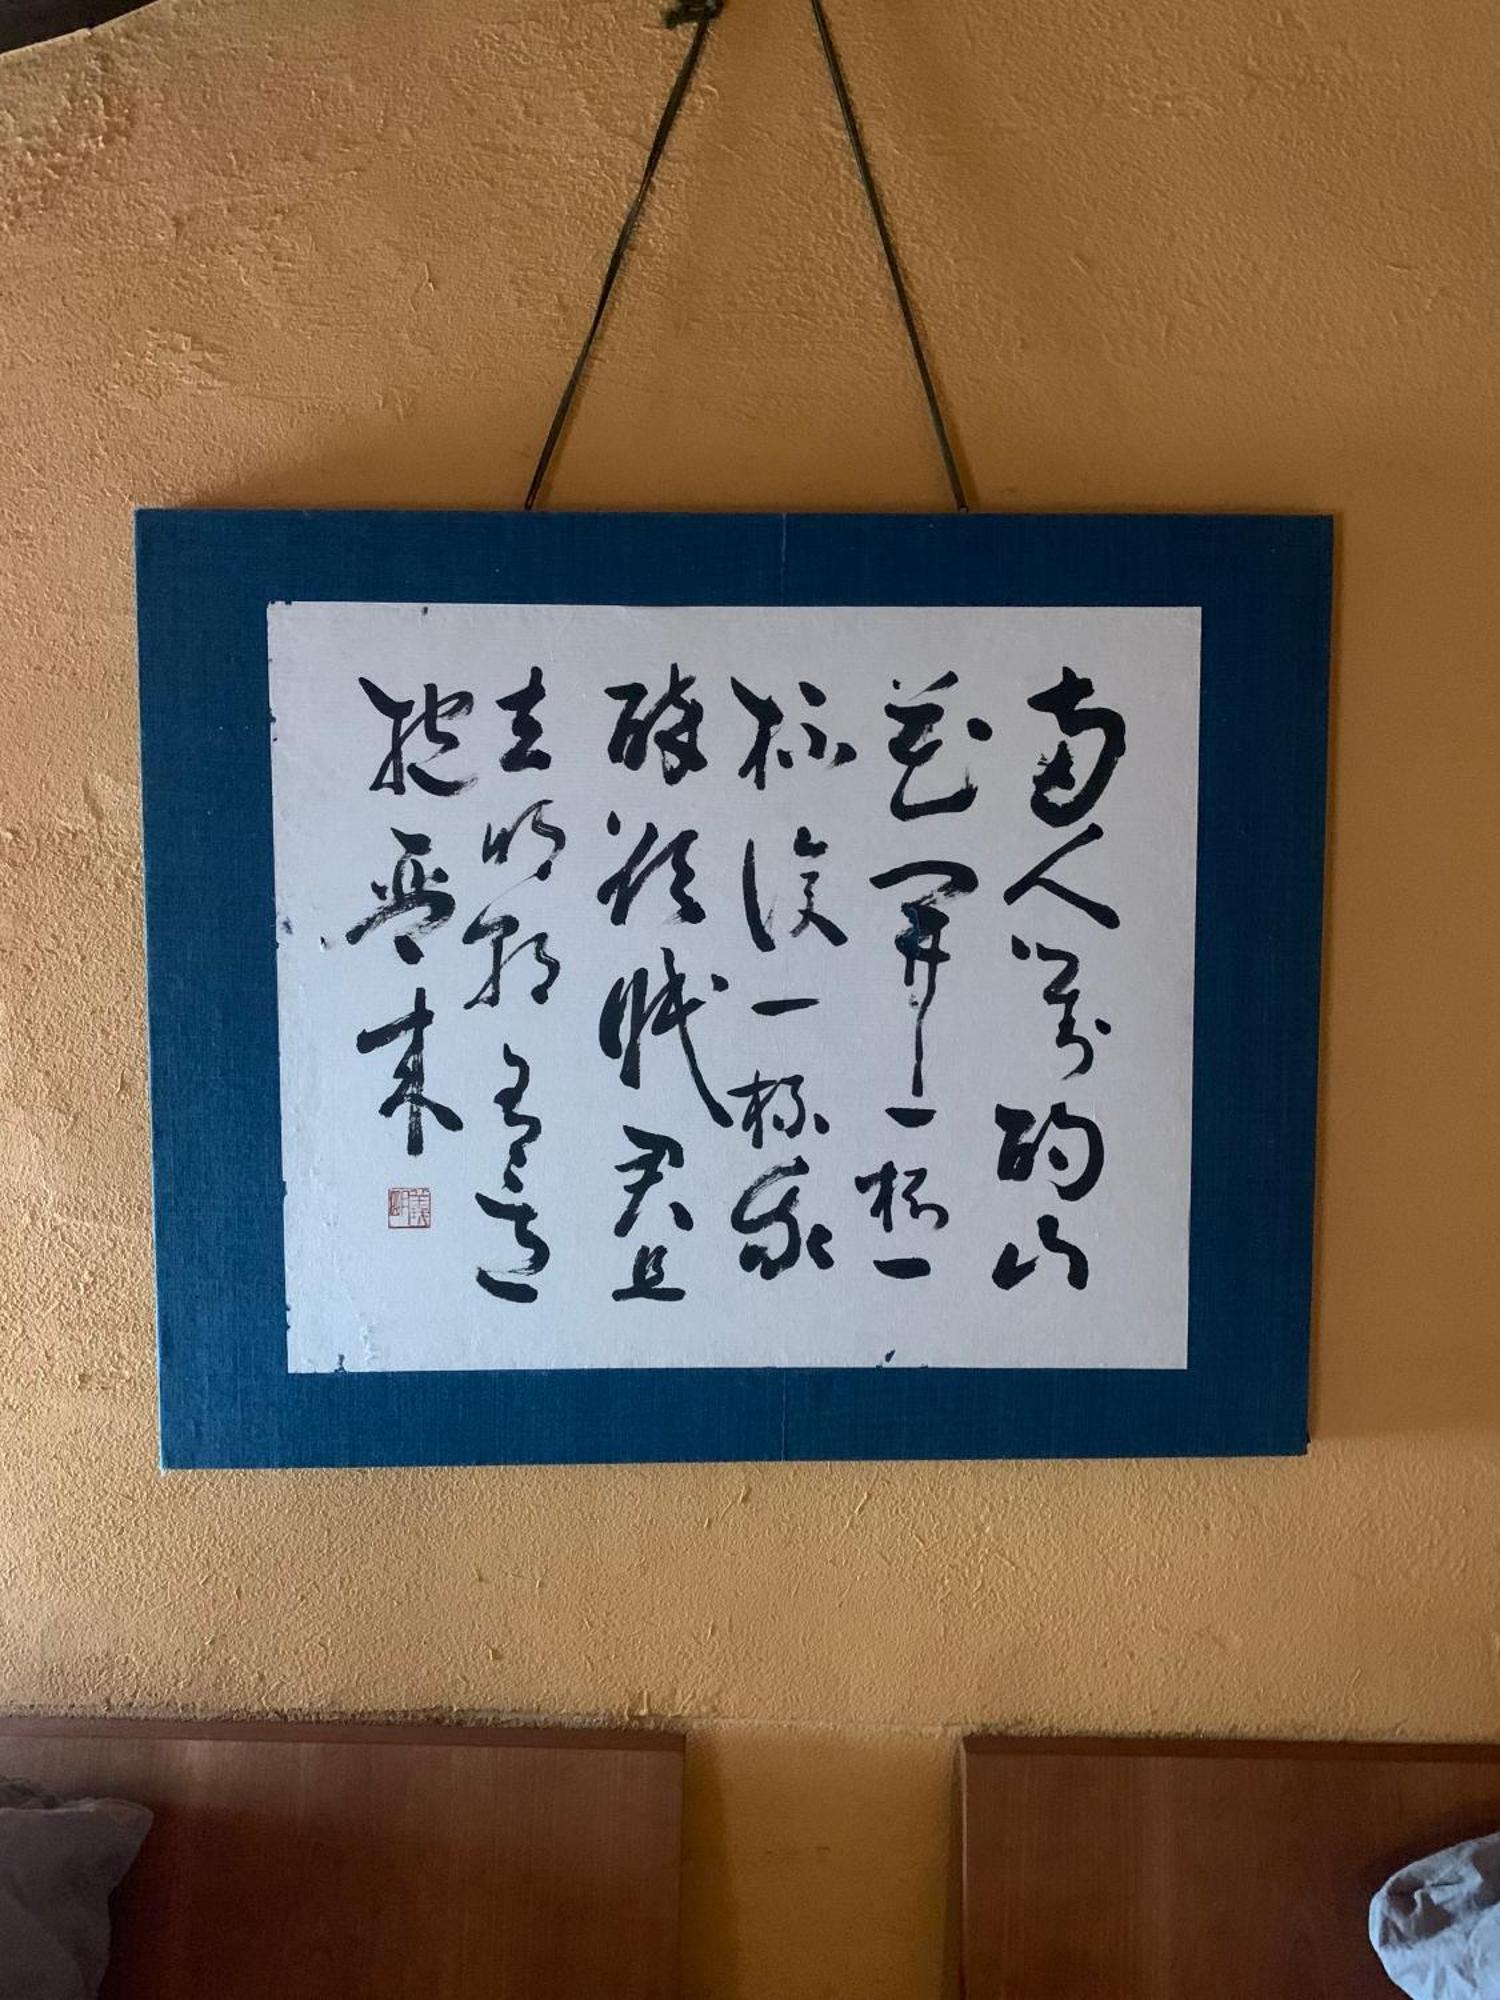 兩人對酌山
花開一杯一
杯復一杯我
醉欲眠君且
去明朝有意
抱琴来